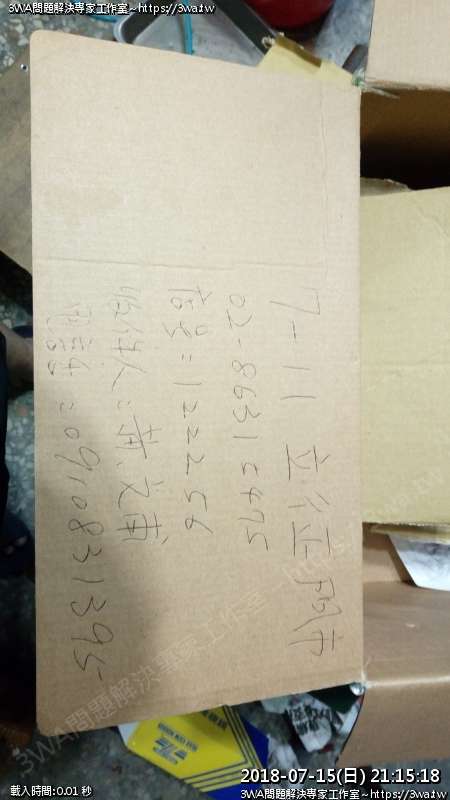 3WA問題解決專家工作室~https://3wa.tw
7-11 立征門市
02-86312475
店號:122256
收件人:黃文甫
電話:0910831395
3WA問題解決專家工作室~https://3wa.tw
載入時間:0.01 秒
2018-07-15(日) 21:15:18
3WA問題解決專家工作室~https://3wa.tw